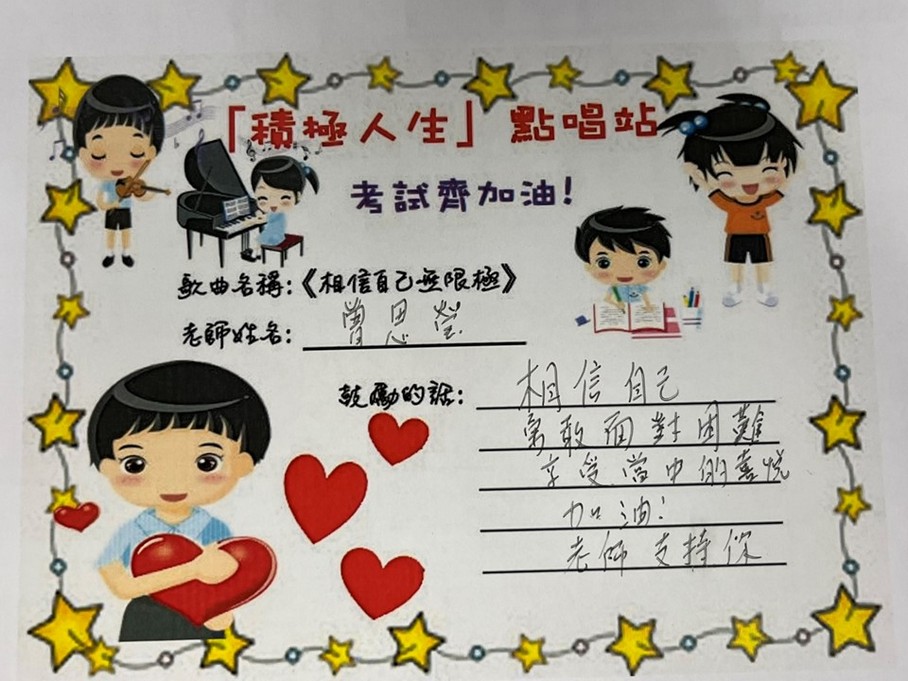 「積極人生」點唱站
考試齊加油!
歌曲名稱:《相信自己無限極》
老師姓名: 曾思瑩
鼓勵的話: 相信自己
勇敢面對困難
享受當中的喜悅
加油!
老師支持你